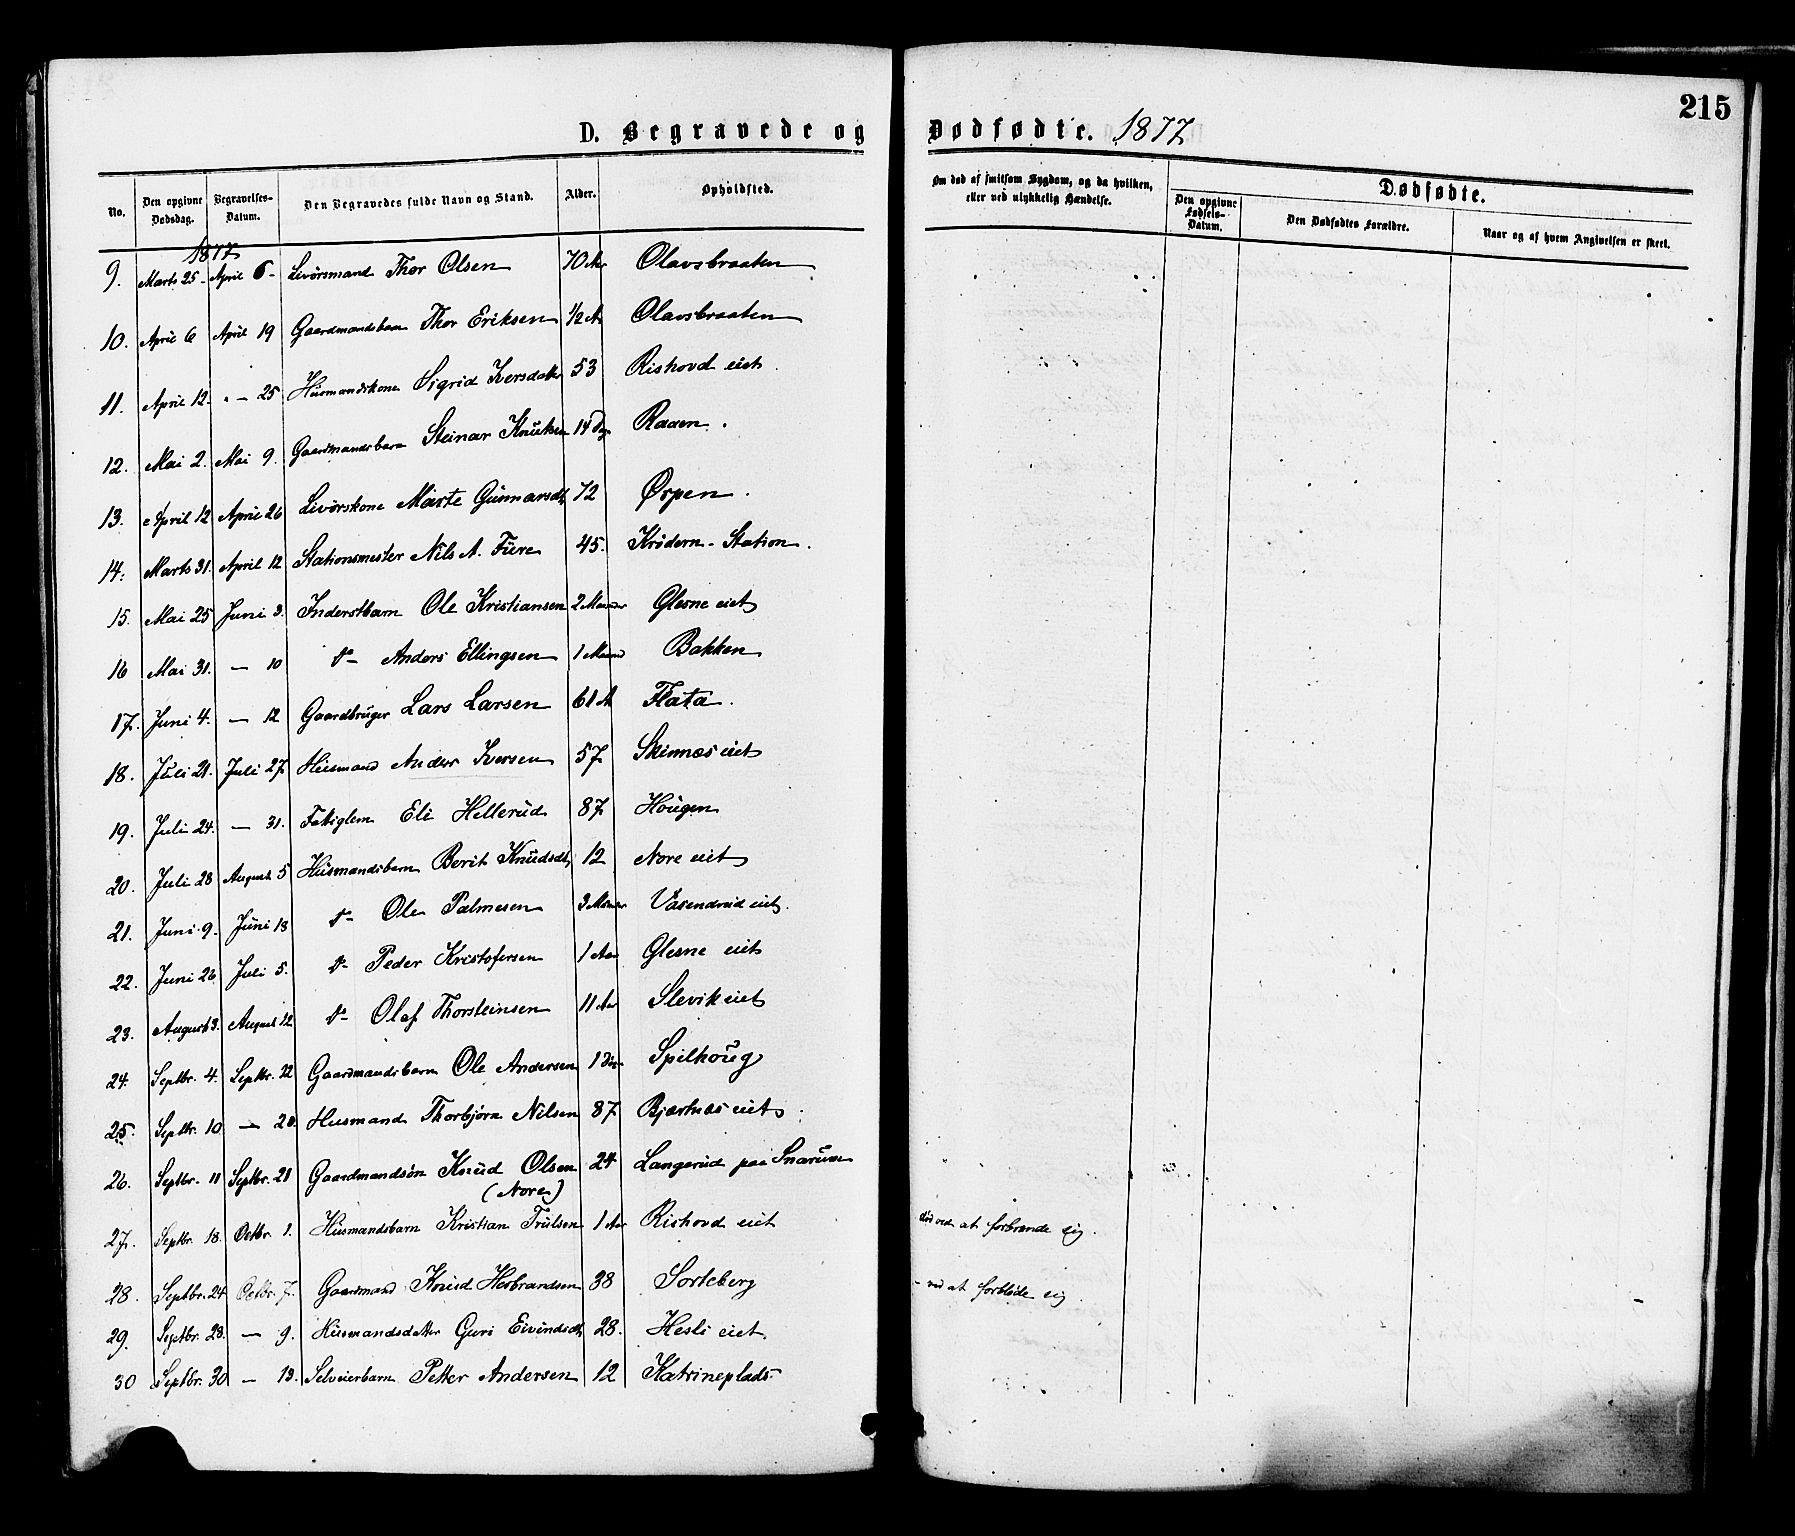 215
D. Begravede og Dødfødte. 1877
No. | Den opgivne Dødsdag. | Begravelses-Datum. | Den Begravedes fulde Navn og Stand. | Alder. | Opholdssted. | Om død af smitsom Sygdom, og da hvilken, eller ved ulykkelig Hændelse. | Dødfødte. | Den opgivne Fødsels-Datum. | Den Dødfødtes Forældre. | Naar og af hvem Angivelsen er skeet.
1877
9. Marts 25 - April 6 - Livørsmand Thor Olsen 70 Aar Olavsbraaten
10. April 6 April 19 Gaardmandsbarn Thor Eriksen 1/2 A Olavsbraaten
11. April 12. " - 25 Husmandskone Sigrid Iversdatter 53 Rishovd eiet.
12. Mai 2. Mai 9. Gaardmandsbarn Steinar Knutsen 14 Dag Raaen.
13. April 12 April 26 Livørskone Marte Gunnarsdt. 72 Ørpen.
14. Marts 31. April 12 Stationsmester Nils A. Fure 45. Krødern-Station.
15. Mai 25 Juni 3. Inderstbarn Ole Kristiansen 2 Maaneder Glesne eiet
16 Mai 31. — 10 do- Anders Ellingsen 1 Maaned Bakken
17. Juni 4. — 12 Gaardbruger Lars Larsen 61 A Flata.
18. Juli 21. Juli 27. Husmand Anders Iversen 57 Skinnæs eiet
19. Juli 24. — 31. Fattiglem Eli Hellerud 87 Hougen
20. Juli 28 August 5 Husmandsbarn Berit Knudsdt. 12 Nore eiet
21. Juni 9. Juni 13 do- Ole Palmesen 3 Maaneder Vasendrud eiet.
22. Juni 26 Juli 5. do- Peder Kristofersen 1 Aar Glesne eiet
23. August 3. August 12 do- Olaf Thorsteinsen 11 Aar Slevik eiet
24. Septbr. 4. Septbr. 22 Gaardmandsbarn Ole Andersen 1 Spilhoug
25. Septbr. 10 — 20 Husmand Thorbjørn Nilsen 87 Bjærtnæs eiet.
26. Septbr. 11 Septbr. 21 Gaardmandsøn Knud Olsen 24 Langerud paa Snarum
(Nore)
27. Septbr. 18. Octbr. 1. Husmandsbarn Kristian Trulsen 1 Aar Rishovd eiet død ved at forbrænde sig.
28. Septbr. 24 Octbr. 7. Gaardmand Knud Herbrandsen 38 Sorteberg - ved at forbløde sig.
29. Septbr. 28. — 9. Husmandsdatter Guri Eivindsdt. 28. Hesli eiet.
30 Septbr. 30 — 13. Selveierbarn Petter Andersen 12 Katrineplads